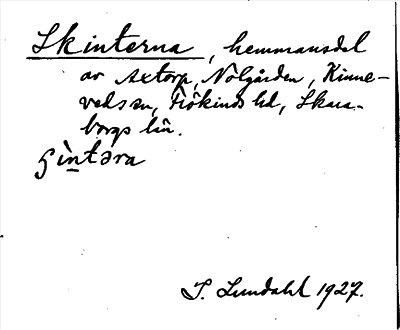 Skinterna, hemmansdel
av Axtorp, Nolgården, Kinne-
veds sn, Frökinds hd, Skara-
borgs län.
ʃìntəra
I. Lundahl 1927.